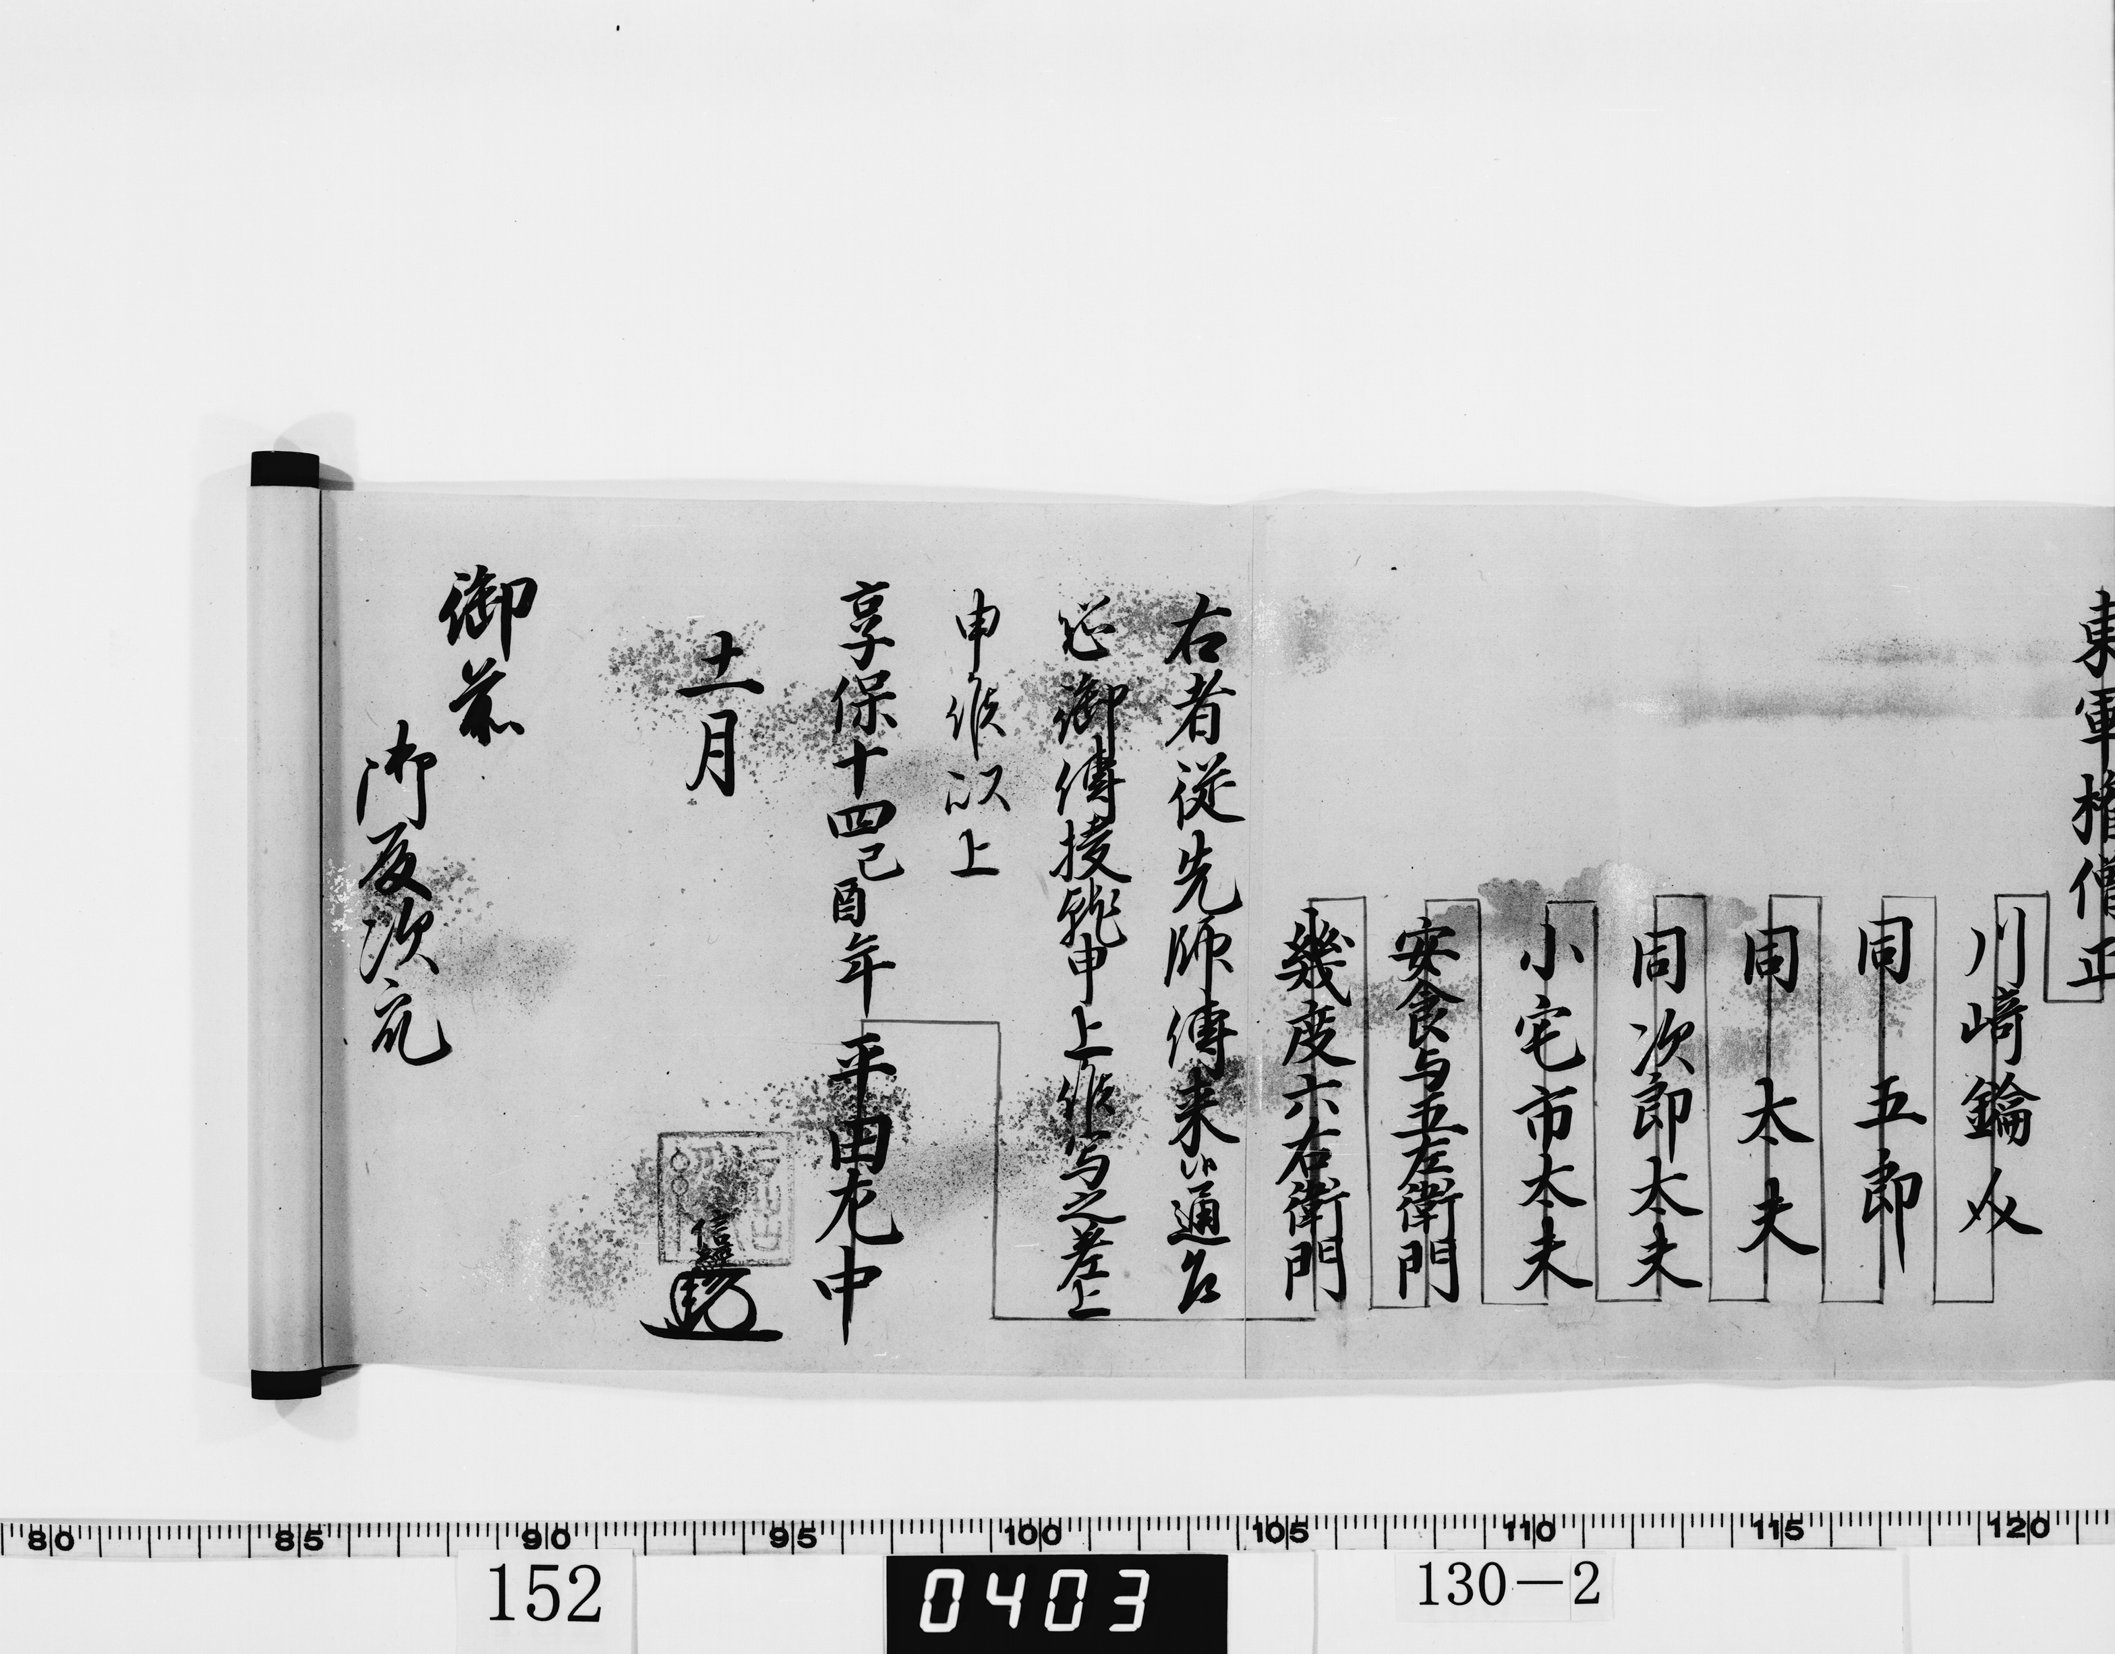 東軍権僧正
川﨑鑰
同 五郎
同 太夫
同次郎太夫
小宅市太夫
安食与五左衛門
幾度六右衛門
右者従先師傳来之通各
御傳授 申上候与之差上
申候以上
享保十四己酉年 平田尤中
十一月
信
御前
御取次充
80 85 90 95 100 105 110 115 120
152 0403 130-2